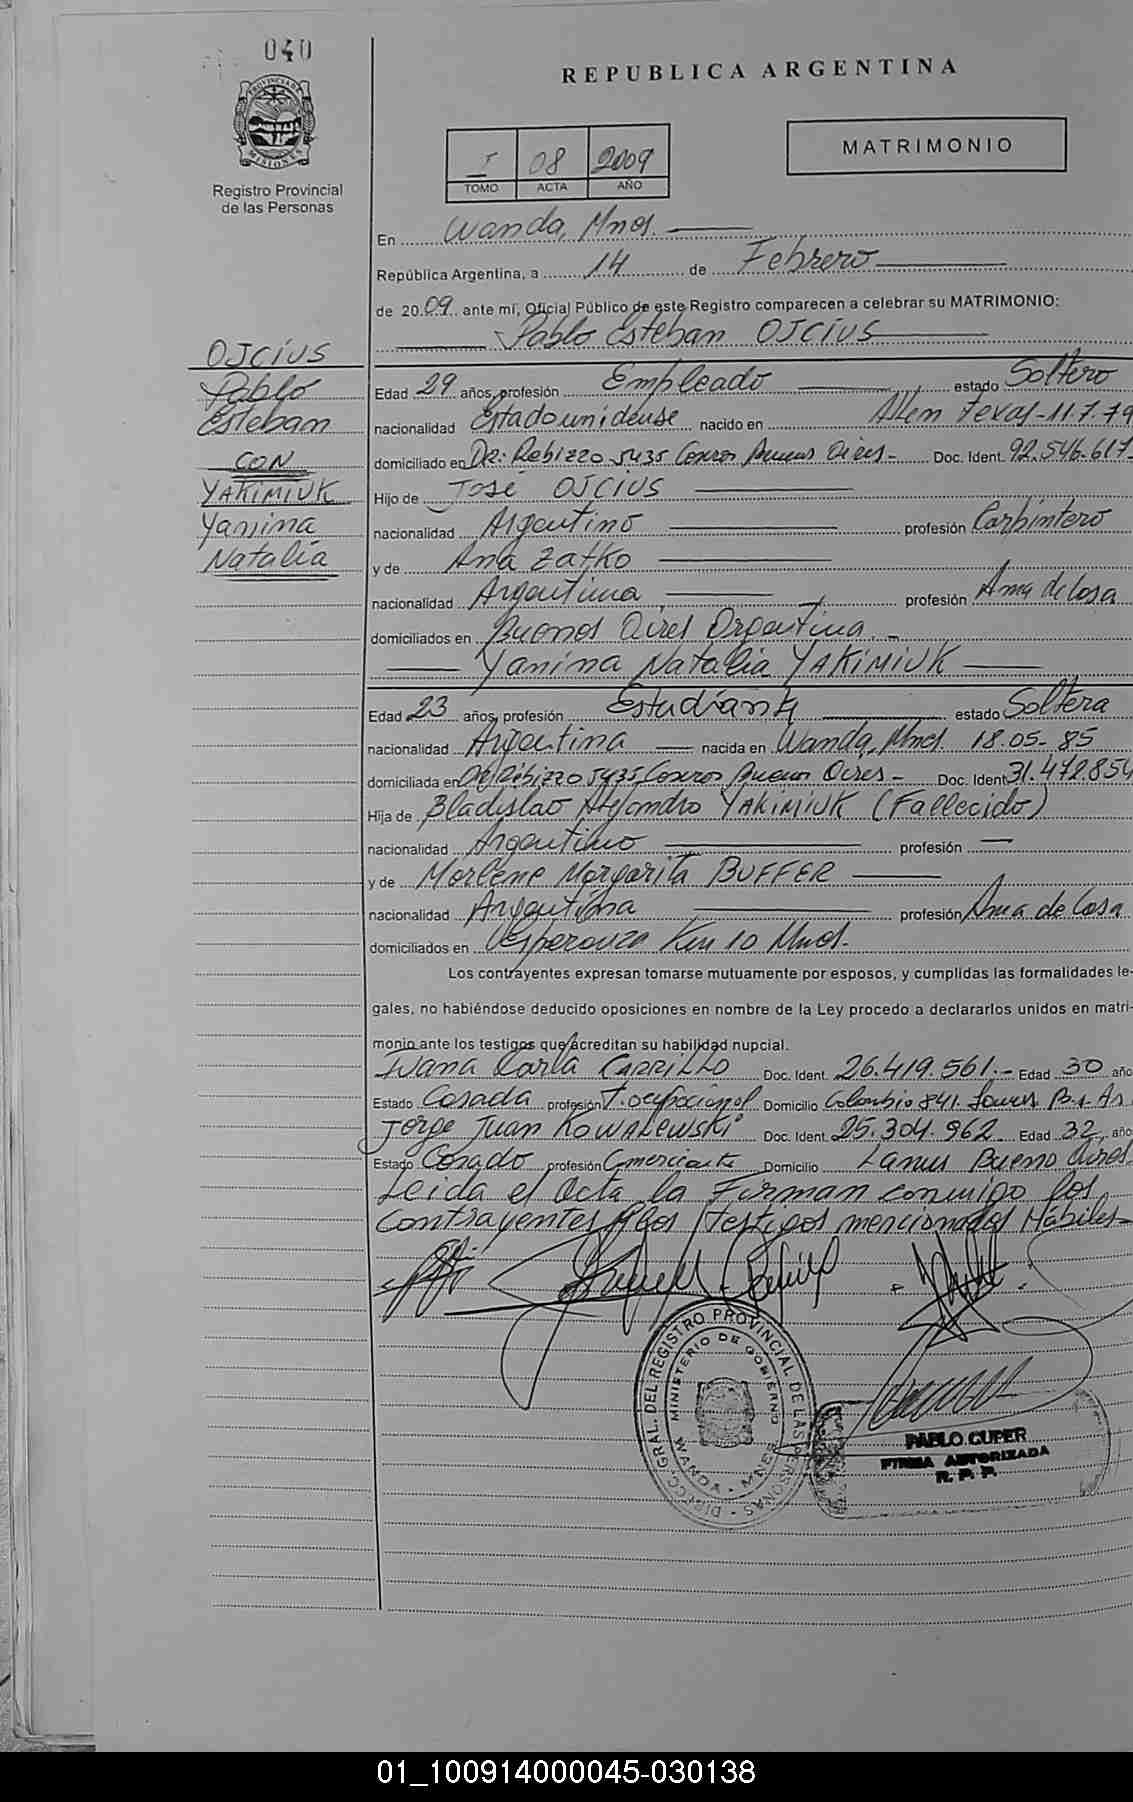 040
REPUBLICA ARGENTINA
PROVINCIA DE MISIONES
Registro Provincial
de las Personas
I 08 2009
TOMO ACTA AÑO
MATRIMONIO
En Wanda, Mnes.
República Argentina, a 14 de Febrero
de 2009 ante mí, Oficial Público de este Registro comparecen a celebrar su MATRIMONIO:
Pablo Esteban OJCIUS
OJCIUS
Pablo
Esteban
CON
YAKIMIUK
Yanina
Natalia
Edad 29 años, profesión Empleado estado Soltero
nacionalidad Estadounidense nacido en Allen Texas-11.7.79
domiciliado en DR. Rebizzo 5435 Caseros Buenos Aires- Doc. Ident. 92.546.617-
Hijo de José OJCIUS
nacionalidad Argentino profesión Carpintero
y de Ana Zatko
nacionalidad Argentina profesión Ama de Casa
domiciliados en Buenos Aires Argentina.-
Yanina Natalia YAKIMIUK
Edad 23 años, profesión Estudiante estado Soltera
nacionalidad Argentina nacida en Wanda, Mnes. 18.05-85
domiciliada en DR Rebizzo 5435 Caseros Buenos Aires- Doc. Ident 31.472.854
Hija de Bladislao Alejandro YAKIMIUK (Fallecido)
nacionalidad Argentino profesión —
y de Marlene Margarita BUFFER
nacionalidad Argentina profesión Ama de Casa
domiciliados en Esperanza Km 10 Mnes.
Los contrayentes expresan tomarse mutuamente por esposos, y cumplidas las formalidades le-
gales, no habiéndose deducido oposiciones en nombre de la Ley procedo a declararlos unidos en matri-
monio ante los testigos que acreditan su habilidad nupcial.
Ivana Carla CARRILLO Doc. Ident. 26.419.561.- Edad 30 año
Estado Casada profesión T. ocupacional Domicilio Colombia 841. Lanus Bs. As.
Jorge Juan KOWALEWSKI Doc. Ident. 25.304.962 Edad 32, año
Estado Casado profesión Comerciante Domicilio Lanus Bueno Aires-
Leida el Acta la Firman conmigo los
Contrayentes y los testigos mencionados Hábiles-
DIRECC. GRAL. DEL REGISTRO PROVINCIAL DE LAS PERSONAS
MINISTERIO DE GOBIERNO
WANDA - MNES
PABLO CUPER
FIRMA AUTORIZADA
R. P. P.
01_100914000045-030138